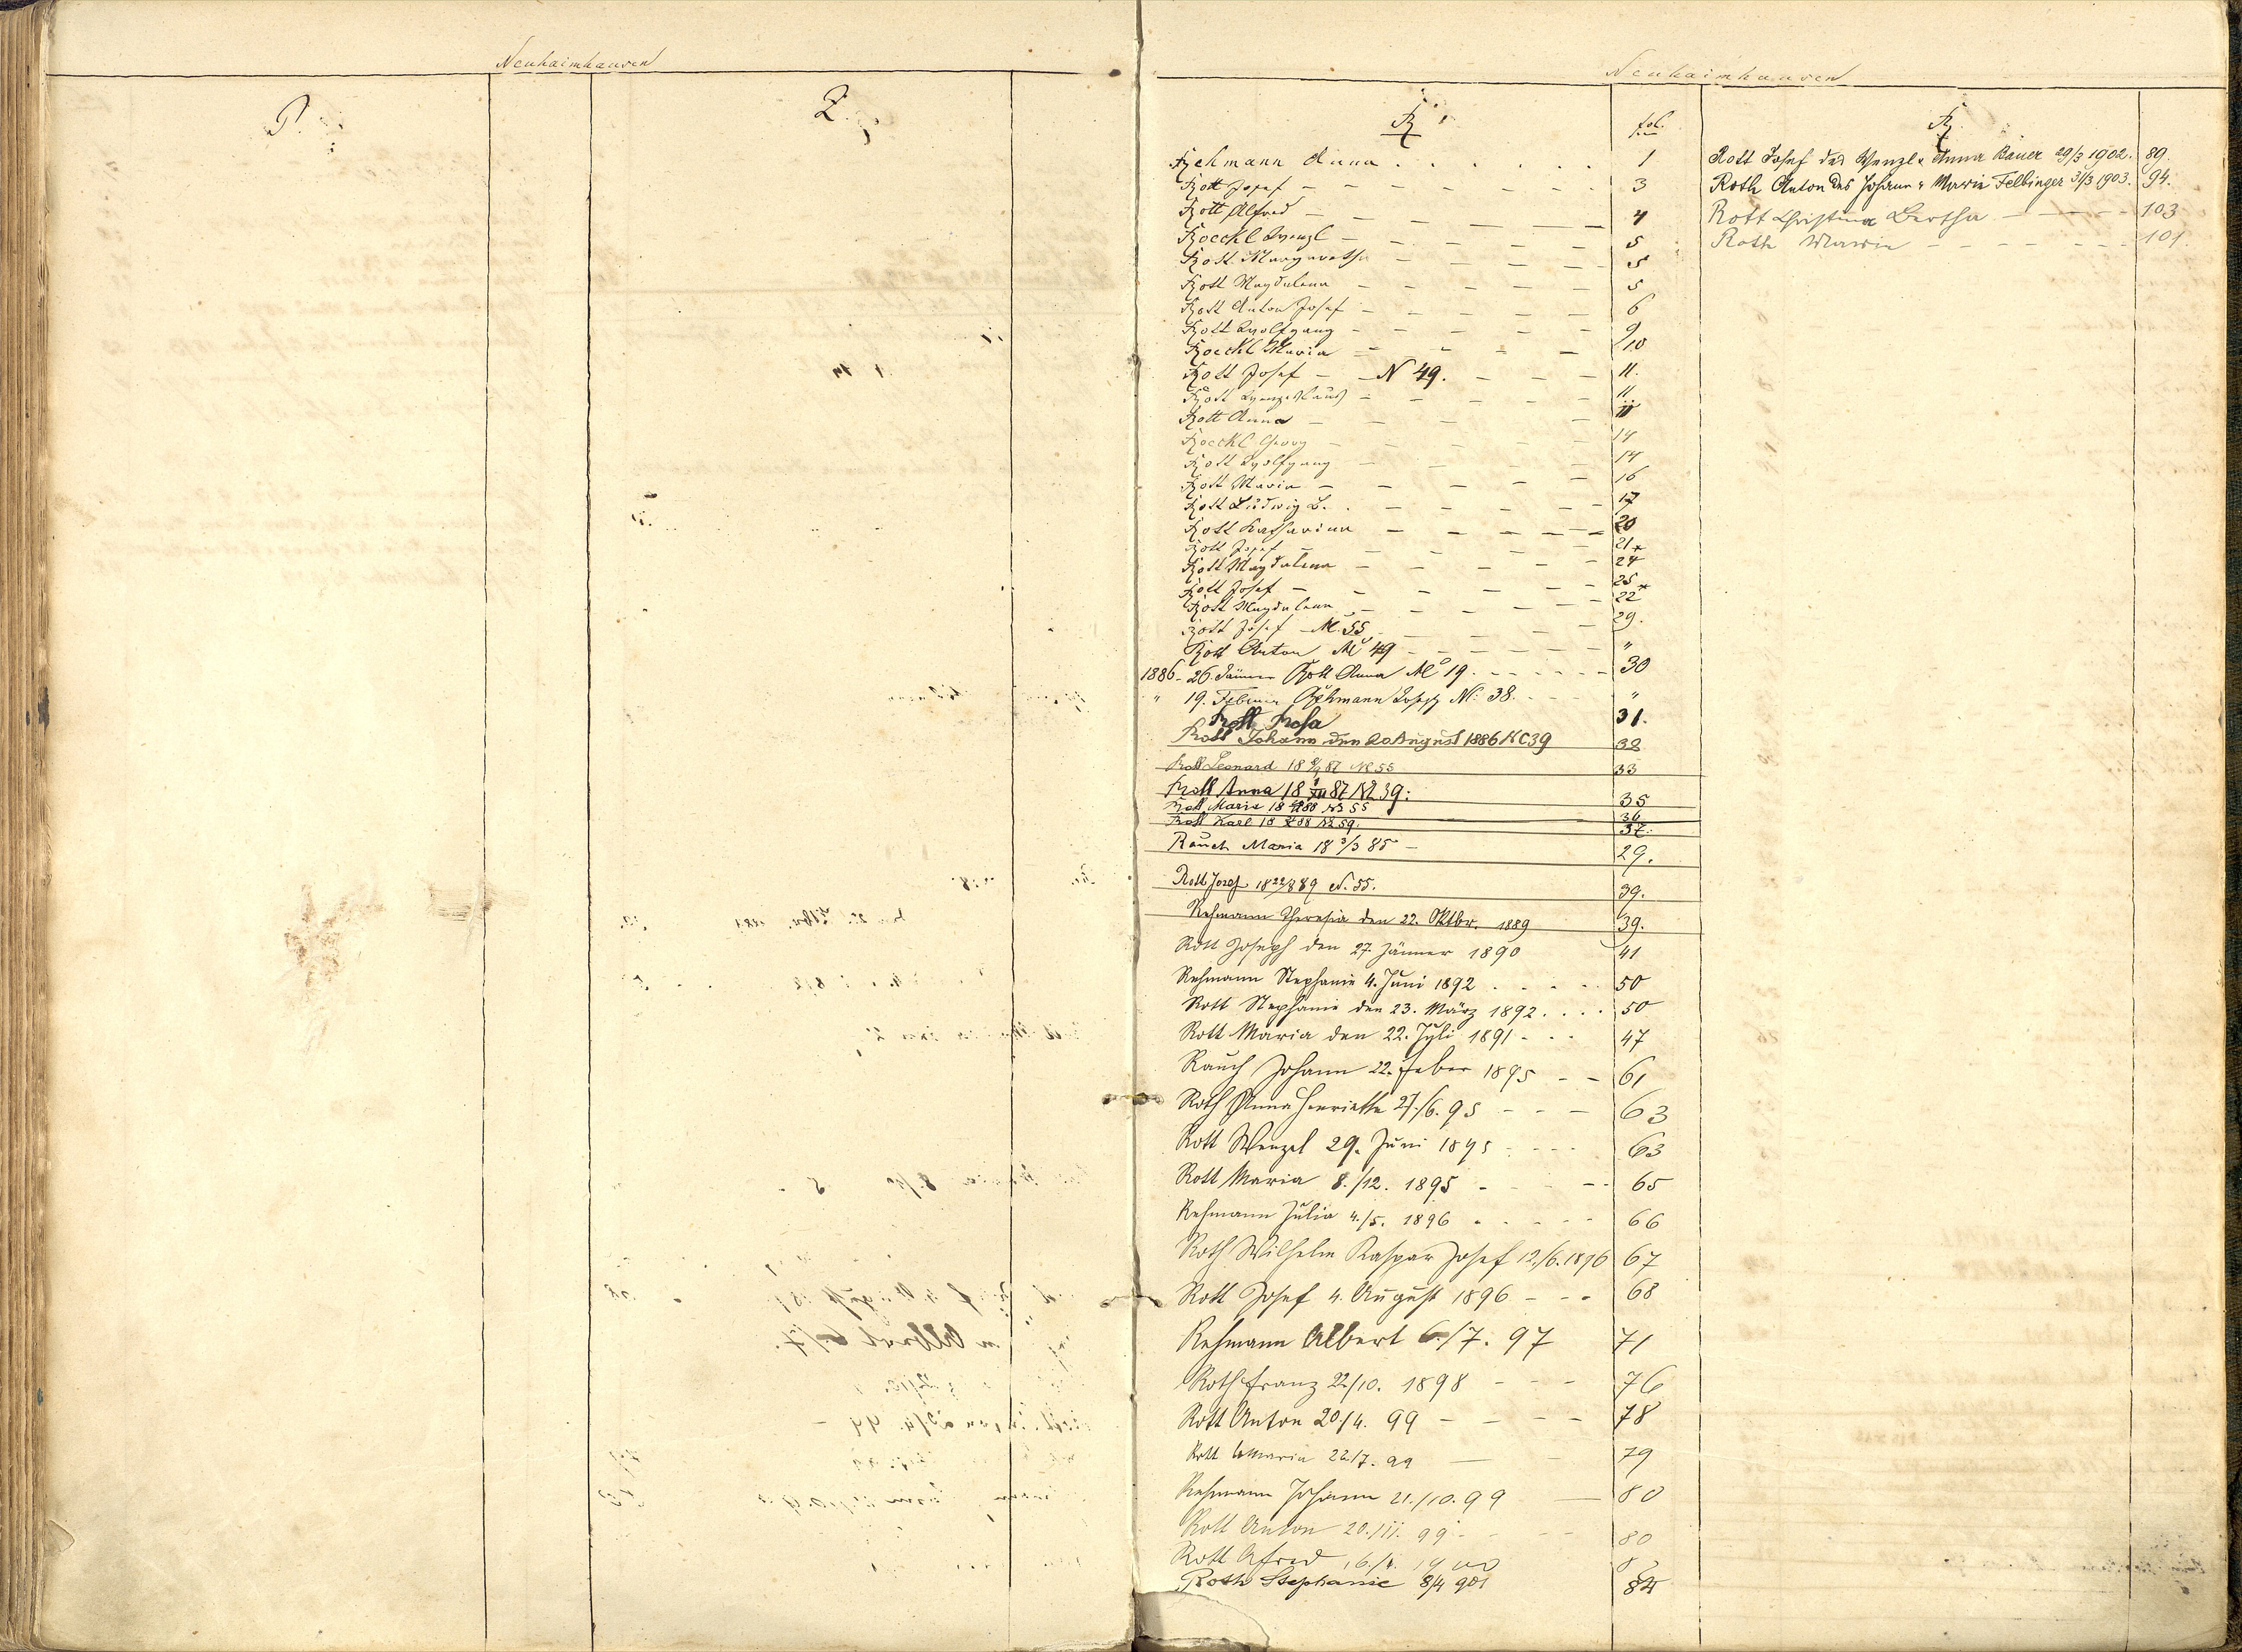 Neuhaimhausen
P.
Q.
Neuhaimhausen
R
fol.
Rehmann Anna 1
Rott Josef 3
Rott Alfred 4
Roeckl Wenzl 5
Rott Margaretha 5
Rott Magdalena 5
Rott Anton Josef 6
Rott Wolfgang 9
Roeckl Maria 10
Rott Josef N 49. 11.
Rott Wenzeslaus 11
Rott Anna 11
Roeckl Georg 14
Rott Wolfgang 14
Rott Maria 16
Rott Ludwig B. 17
Rott Katharina 20
Rott Josef 21
Rott Magdalena 24
Rott Josef 25
Rott Magdalena 22
Rott Josef N. 55 29.
Rott Anton No 49 "
1886 - 26. Jänner Rott Anna No 19. 30
" 19. Februar Rehmann Joseph N: 38. "
Rott Rosa 31.
Rott Johann den 20 August 1886 NC 39 32
Rott Leonard 18 87 N 55 33
Rott Anna 18 87 N 39: 35
Rott Marie 18 88 N 55 36
Rott Karl 18 88 N 59. 37.
Rauch Maria 18 3/3 85 29.
Rott Josef 18 22/8 89 N. 55. 39.
Rehmann Theresia den 22. Oktbr. 1889 39.
Rott Joseph den 27. Jänner 1890 41
Rehmann Stephanie 4. Juni 1892 50
Rott Stephanie den 23. März 1892 50
Rott Maria den 22. Juli 1891 47
Rauch Johann 22. Feber 1895 61
Roth Anna Henriette 27./6. 95 63
Rott Wenzel 29. Juni 1895 63
Rott Maria 8./12. 1895 65
Rehmann Julia 4./5. 1896 66
Roth Wilhelm Kaspar Josef 12./6. 1896 67
Rott Josef 4. August 1896 68
Rehmann Albert 6./7. 97 71
Roth Franz 22./10. 1898 76
Rott Anton 20./4. 99 78
Rott Maria 22./7. 99 79
Rehmann Johann 21./10. 99 80
Rott Anton 20./11. 99 80
Rott Afred 16./4. 1900
Roth Stephanie 8/4 901 84
R.
Rott Josef des Wenzl u Anna Bauer 29/3 1902. 89.
Roth Anton des Johann u Marie Felbinger 31/3 1903. 94.
Rott Christina Bertha 103
Roth Marie 101.